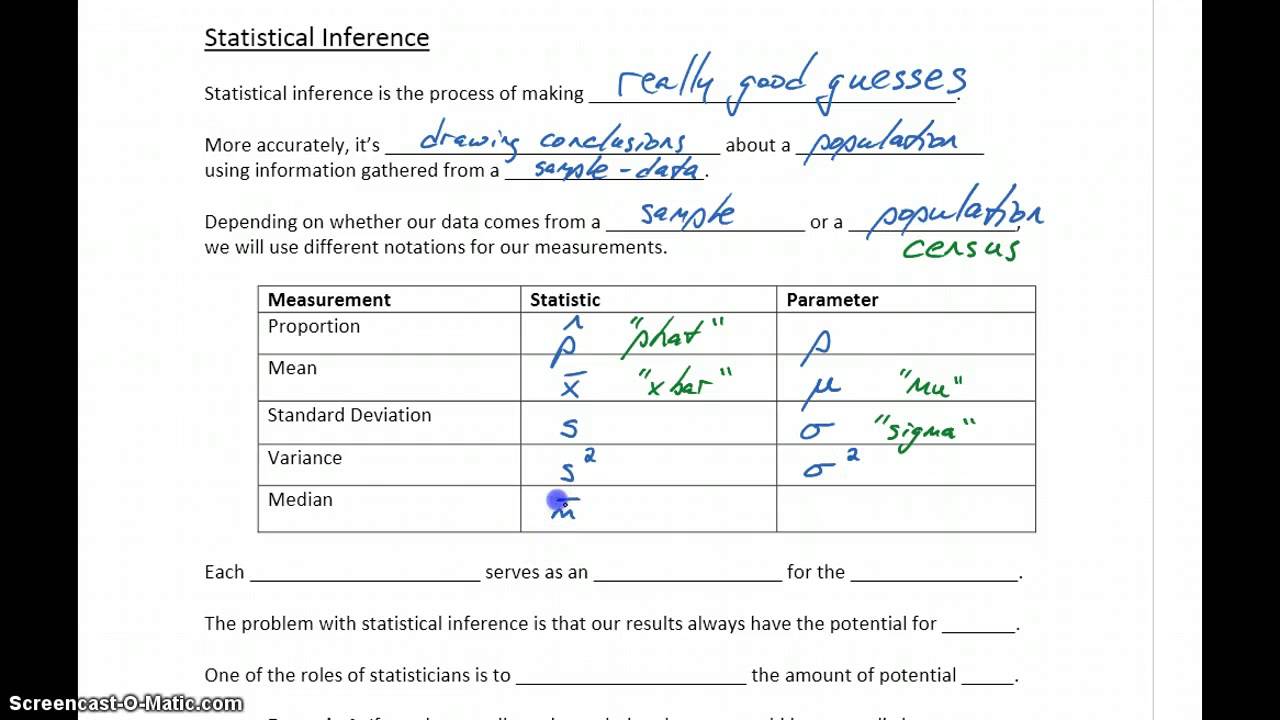 Statistical Inference
Statistical inference is the process of making really good guesses.
More accurately, it's drawing conclusions about a population
using information gathered from a sample-data.
Depending on whether our data comes from a sample or a population,
we will use different notations for our measurements. census
Measurement Statistic Parameter
Proportion p̂ "phat" p
Mean x̄ "x bar" μ "mu"
Standard Deviation s σ "sigma"
Variance s² σ²
Median m̄
Each ____ serves as an ____ for the ____.
The problem with statistical inference is that our results always have the potential for ____.
One of the roles of statisticians is to ____ the amount of potential ____.
Screencast-O-Matic.com